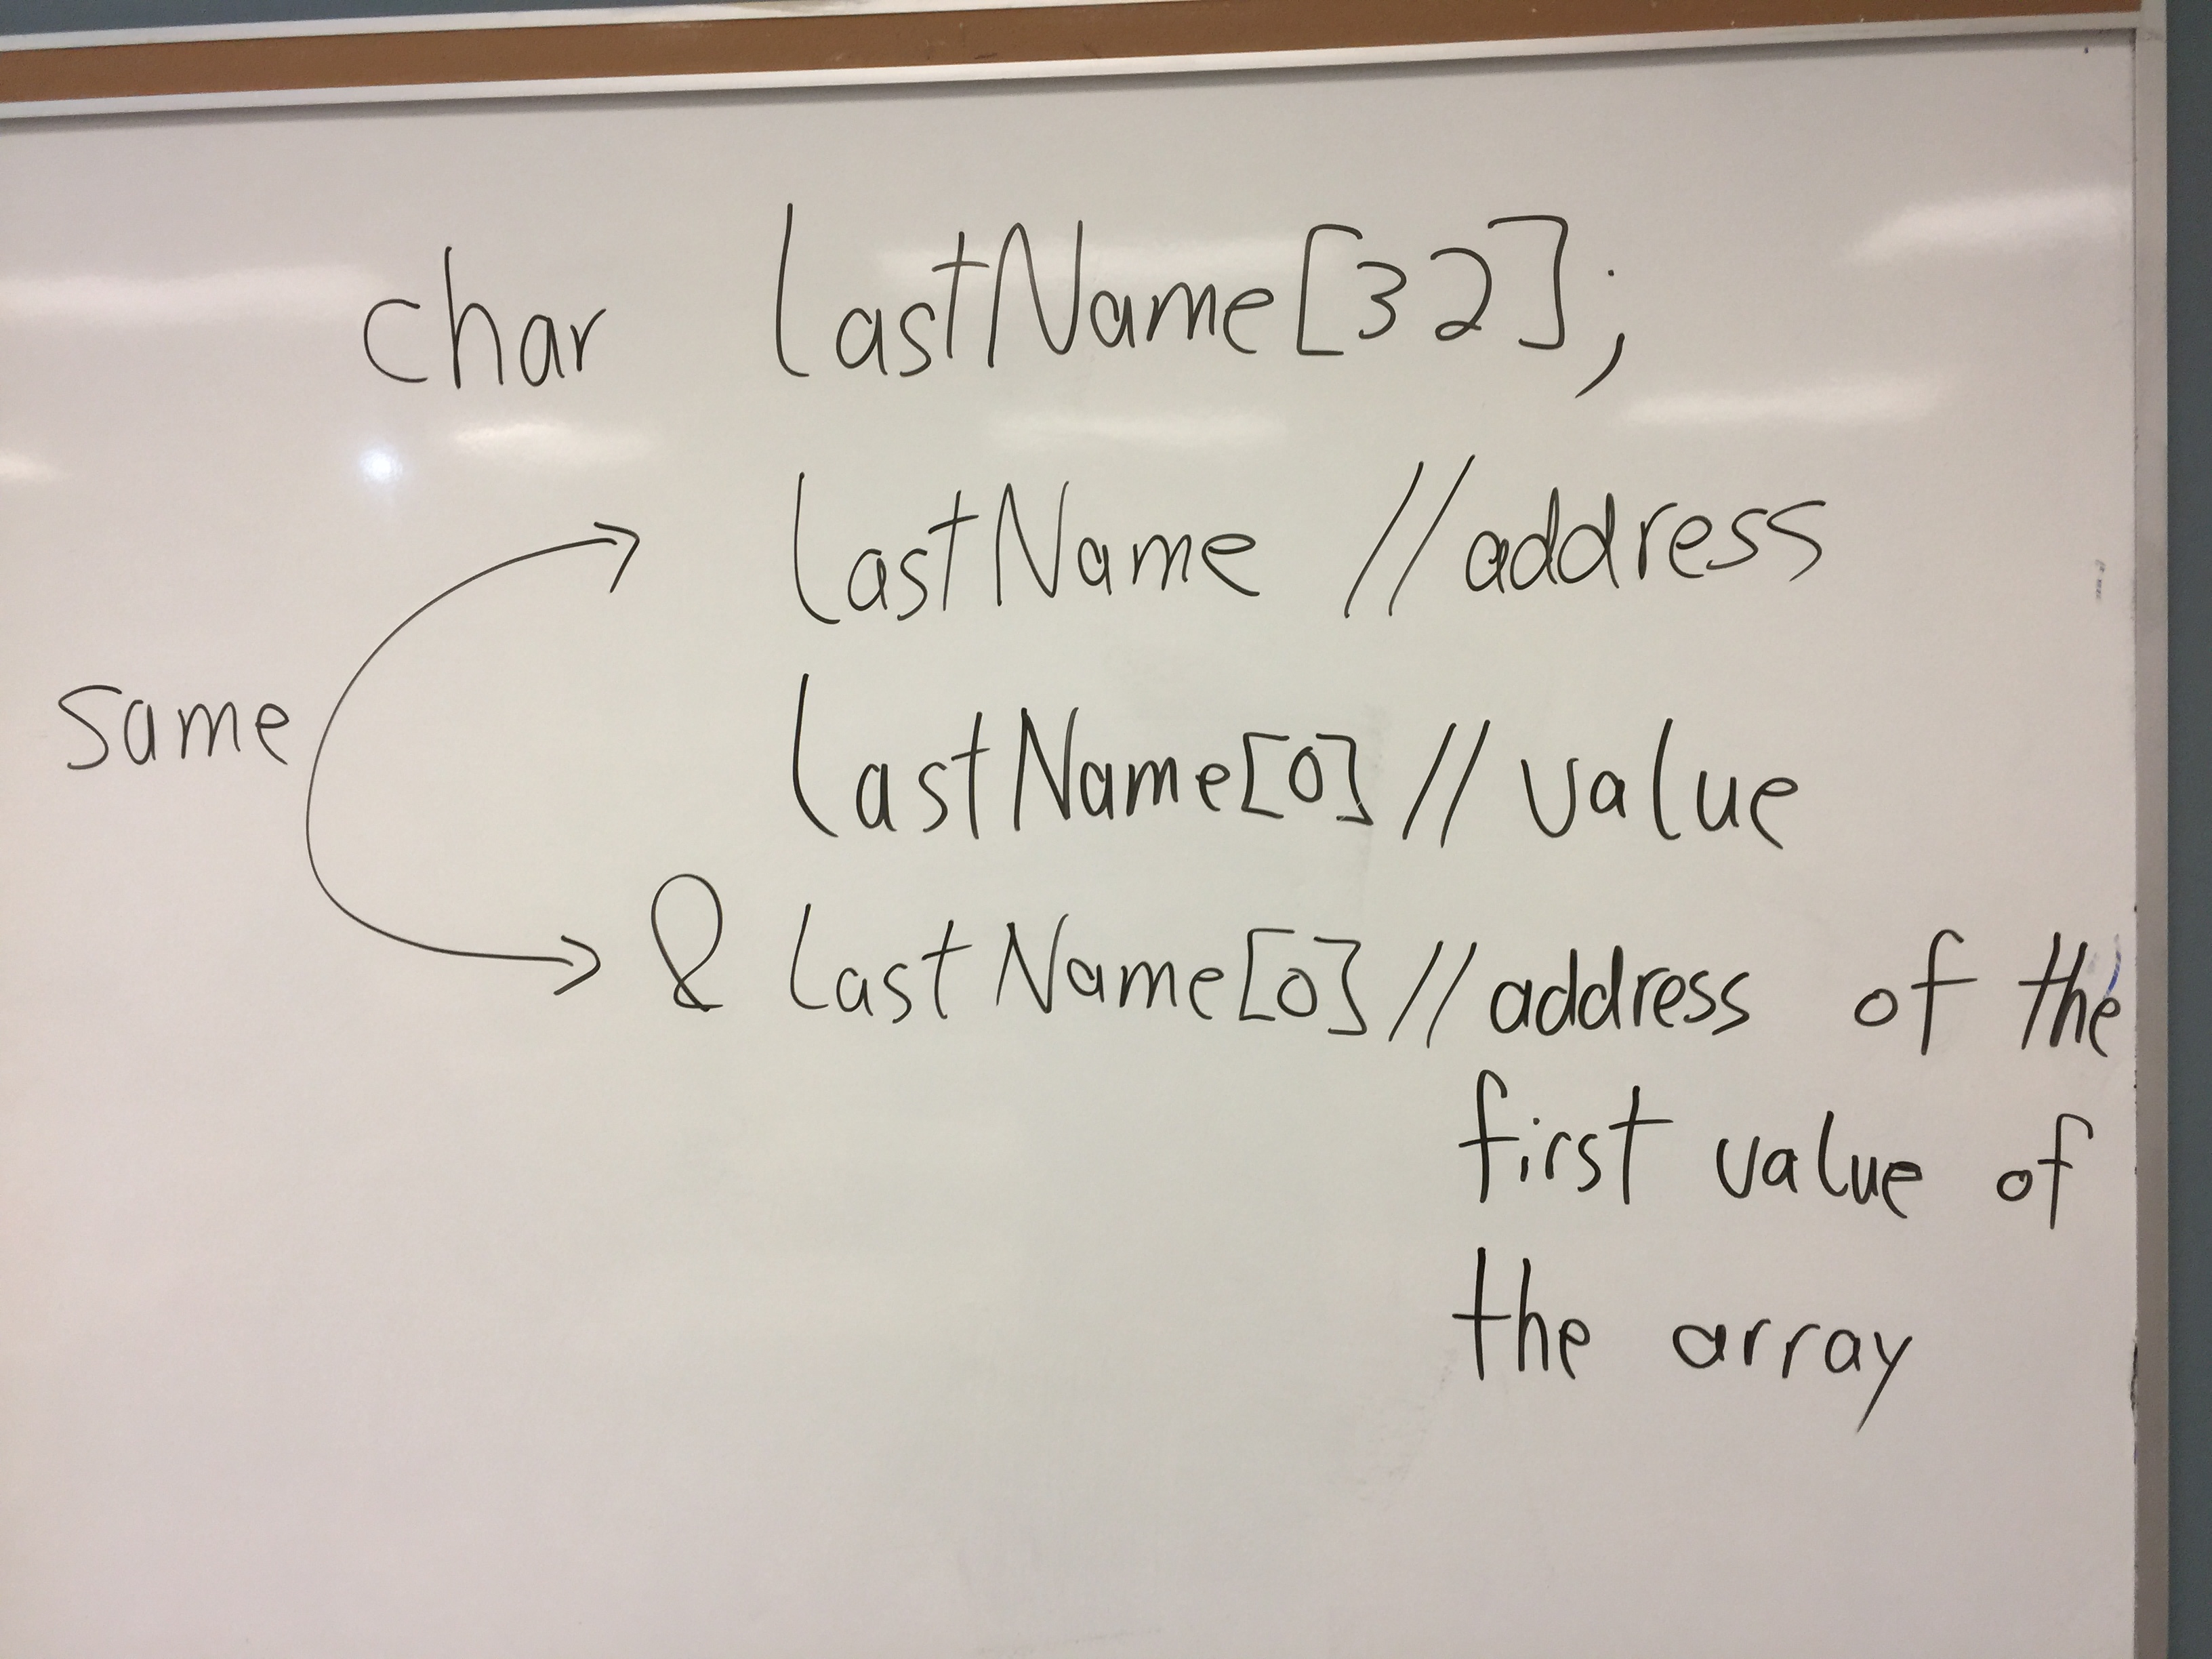 char lastName[32];
lastName //address
same
lastName[0] // value
& lastName[0] // address of the
first value of
the array